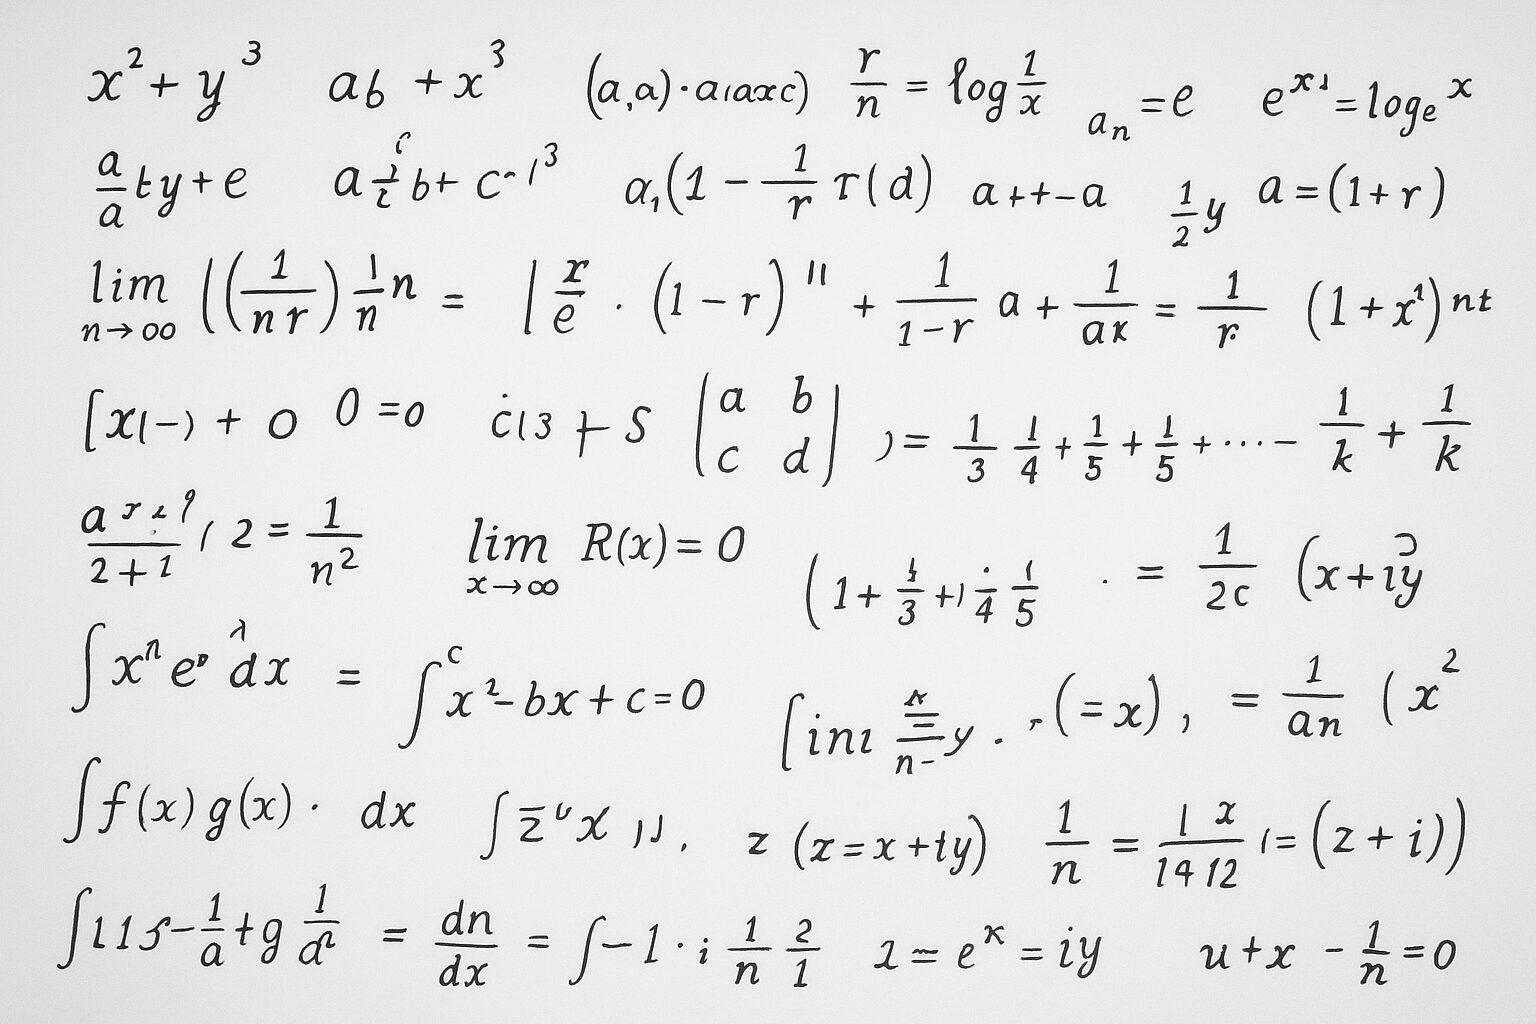 x² + y ³ ab + x³ (a,a)·aıaxc) r/n = log 1/x aₙ = e eˣ¹ = logₑ ˣ
a/a ty + e a b + c - ı³ a,(1 - 1/r τ(d) a ++-a 1/2 y a = (1 + r)
lim n→∞ ((1/nr) 1/n n = | r/e · (1 - r)" + 1/(1-r) a + 1/ax = 1/r (1 + x¹)ⁿᵗ
[x(-) + 0 0 = 0 ċ(3 + S (a b c d) ) = 1/3 1/4 + 1/5 + 1/5 + ··· - 1/k + 1/k
a/(2+1) / 2 = 1/n² lim x→∞ R(x) = 0 (1 + 1/3 + 1/4 1/5 · = 1/2c (x + iy
∫ xⁿ e dx = ∫ᶜ x² - bx + c = 0 [ini n- y · (= x) , = 1/an (x²
∫ f(x) g(x) · dx ∫ z x , z (z = x + ty) 1/n = 1 x/14 12 (= (z + i))
∫ 115 - 1/a + g 1/d = dn/dx = ∫ - 1 · i 1/n 2/1 2 = eˣ = iy u + x - 1/n = 0